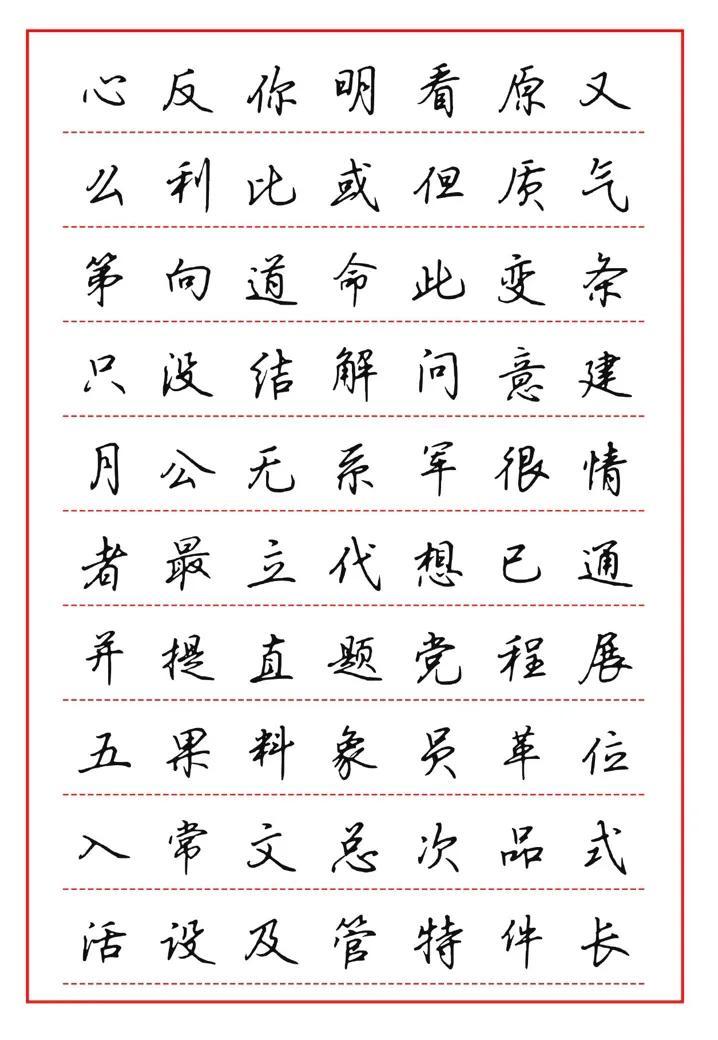 心反你明看原又
么利比或但质气
第向道命此变条
只没结解问意建
月公无系军很情
者最立代想已通
并提直题党程展
五果料象员革位
入常文总次品式
活设及管特件长